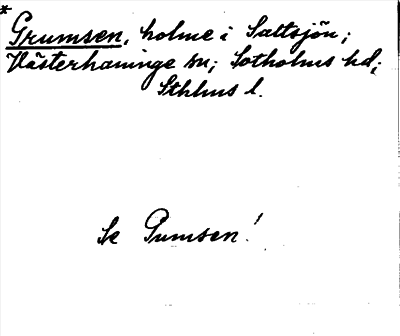 *
Grumsen, holme i Saltsjön;
Västerhaninge sn; Sotholms hd;
Sthlms l.
Se Pumsen!